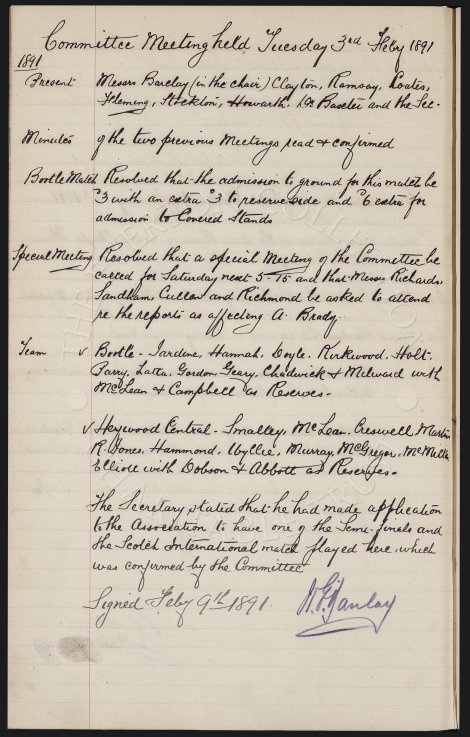 Committee Meeting held Tuesday 3rd Feby 1891
1891
Present Messrs Barclay (in the chair) Clayton, Ramsay, Coates,
Fleming, Stockton, Howarth. Dr Baxter and the Sec-
Minutes of the two previous Meetings read & confirmed
Bootle Match Resolved that the admission to ground for this match be
3 with an extra 3 to reserve side and 6 extra for
admission to Covered Stands
Special Meeting Resolved that a special Meeting of the Committee be
called for Saturday next 5-15 and that Messrs Richards,
Sandham, Cullen and Richmond be asked to attend
re the reports as affecting A. Brady.
Team v Bootle - Jardine, Hannah, Doyle, Kirkwood, Holt,
Parry, Latta, Gordon, Geary, Chadwick & Milward with
McLean & Campbell as Reserves.
v Heywood Central - Smalley, McLean, Creswell, Martin
R. Jones, Hammond, Wyllie, Murray, McGregor,
Elliott with Dobson & Abbott as Reserves.
The Secretary stated that he had made application
to the Association to have one of the Semi-finals and
the Scotch International match played here, which
was confirmed by the Committee
Signed Feby 9th 1891.